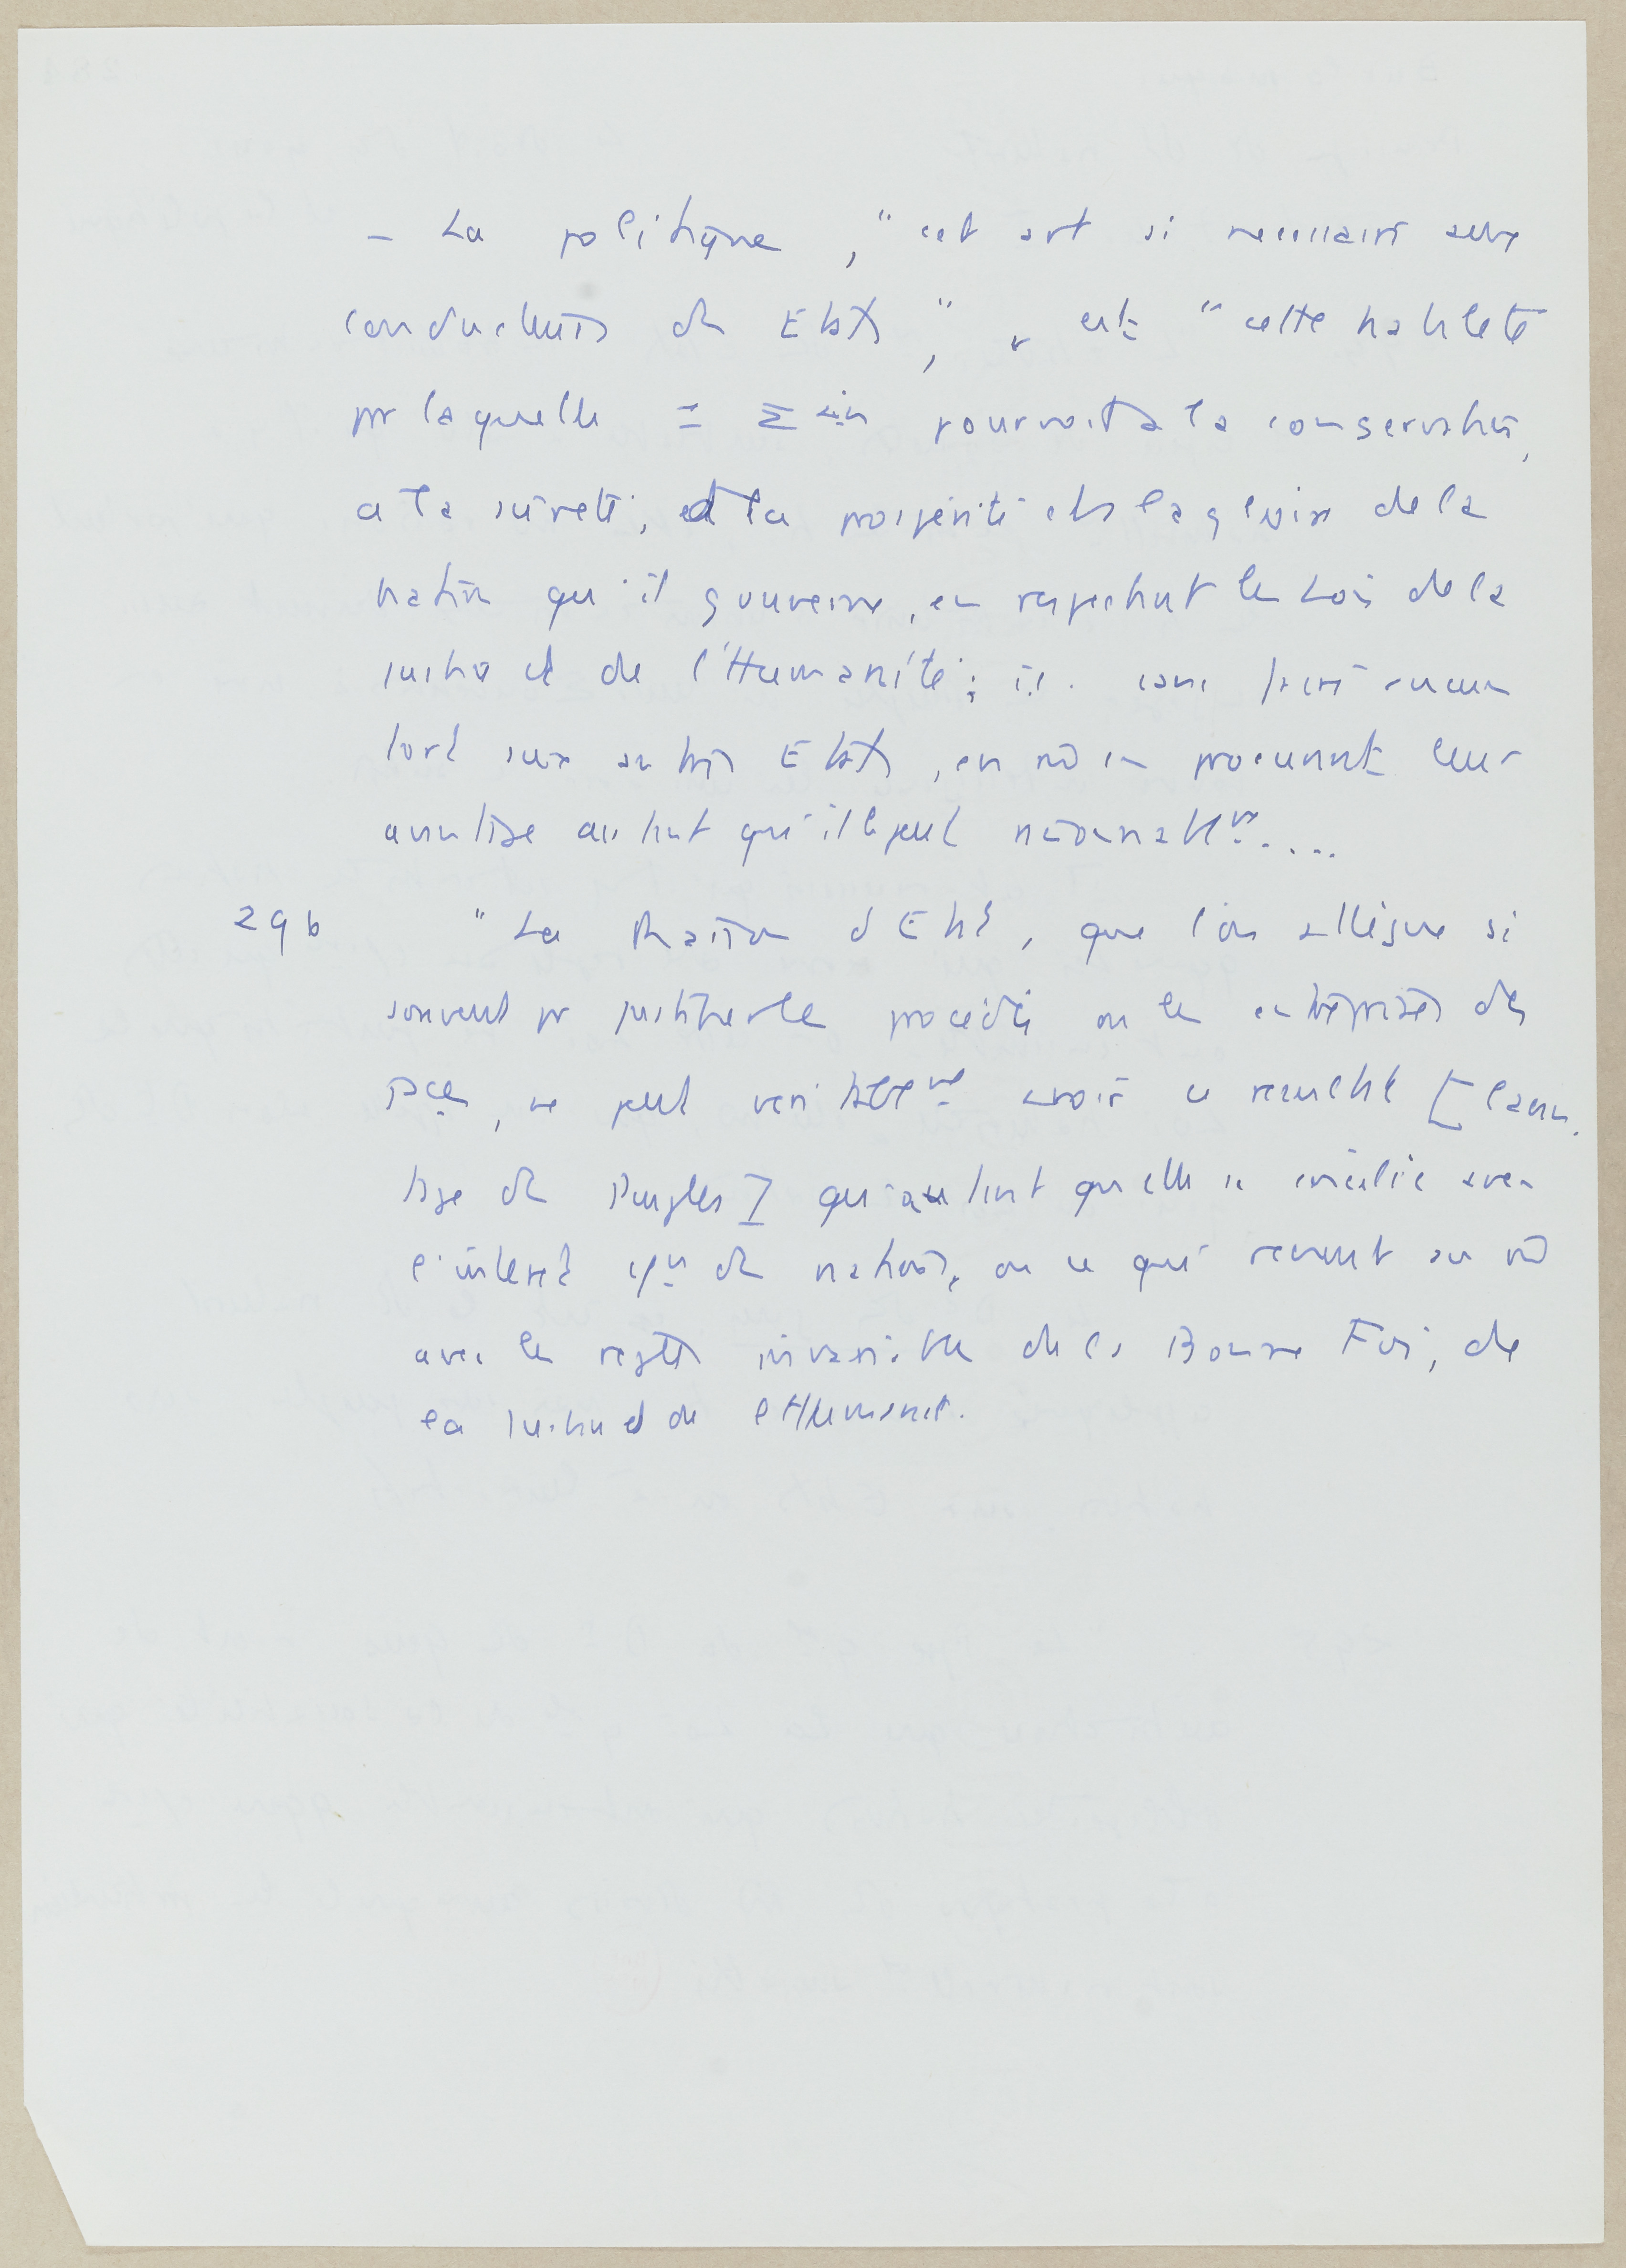 - La politique, " cet art si necessaire aux
conducteurs des Etats, " est " cette habileté
pr laquelle un Σain pourvoit à la conservation,
a la sûreté, et la prospérité et à la gloire de la
nation qu'il gouverne, en respectant les Lois de la
justice et de l'Humanité; i.e. sans faire aucun
tort aux autres Etats, en m̄ en procurant leur
avantage autant qu'il le peut raisonnablt....
296 " La Raison d'Etat, que l'on allègue si
souvent pr justifier les procédés ou les entreprises des
Pces, ne peut véritablet avoir ce résultat [l'avan.
tage des Peuples] qu'autant qu'elle se concilie avec
l'intérêt cmun des nations, ou ce qui revient au m̄
avec les règles invariables de la Bonne Foi, de
la Justice et de l'Humanité.